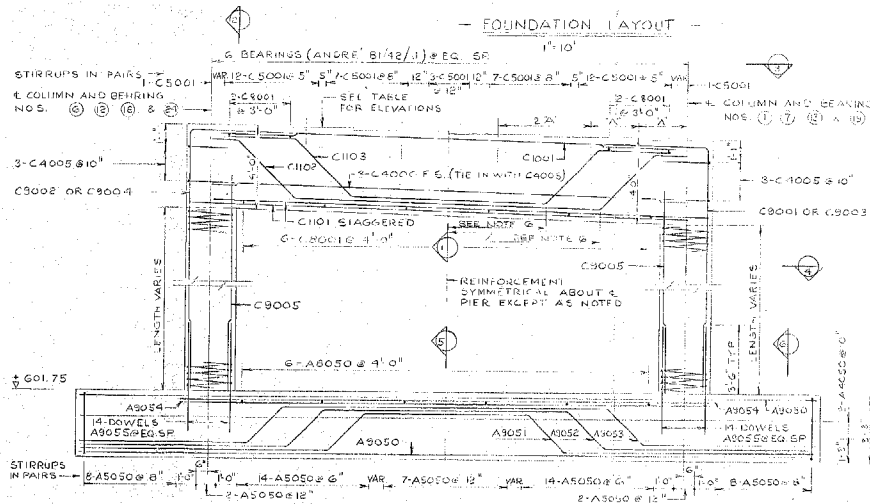 FOUNDATION LAYOUT
1"=10'
2
6 BEARINGS (ANDRE' B1/42/J) @ EQ. SP.
STIRRUPS IN PAIRS
1-C5001
VAR. 12-C5001 @ 5" 5" 7-C5001 @ 8" 12" 3-C5001 @ 12" 12" 7-C5001 @ 8" 5" 12-C5001 @ 5" VAR.
3
1-C5001
℄ COLUMN AND BEARING
NOS. 6 12 18 &
2-C8001
@ 3'-0"
SEE TABLE
FOR ELEVATIONS
2-C8001
@ 3'-0"
℄ COLUMN AND BEARING
NOS. 1 7 13 & 19
2'A' 'A' 'A'
3-C4005 @ 10"
C1103
C1102
C1001
4'-0"
3-C4006 F.S. (TIE IN WITH C4005)
3-C4005 @ 10"
C9002 OR C9004
C9001 OR C9003
C1101 STAGGERED
SEE NOTE 6
SEE NOTE 6
6-C8001 @ 4'-0"
1
C9005
REINFORCEMENT
SYMMETRICAL ABOUT ℄
PIER EXCEPT AS NOTED
4
LENGTH VARIES
C9005
LENGTH VARIES
5
6
6-A8050 @ 4'-0"
3'-6" TYP.
601.75
A9054
14-DOWELS
A9055 @ EQ. SP.
A9050
A9051
A9052
A9053
A9054
A9050
14-DOWELS
A9055 @ EQ. SP.
STIRRUPS
IN PAIRS
8-A5050 @ 8" 1'-0" 6" 1'-0" 14-A5050 @ 6" VAR. 7-A5050 @ 12" VAR. 14-A5050 @ 6" 1'-0" 6" 1'-0" 8-A5050 @ 8"
2-A5050 @ 12"
2-A5050 @ 12"